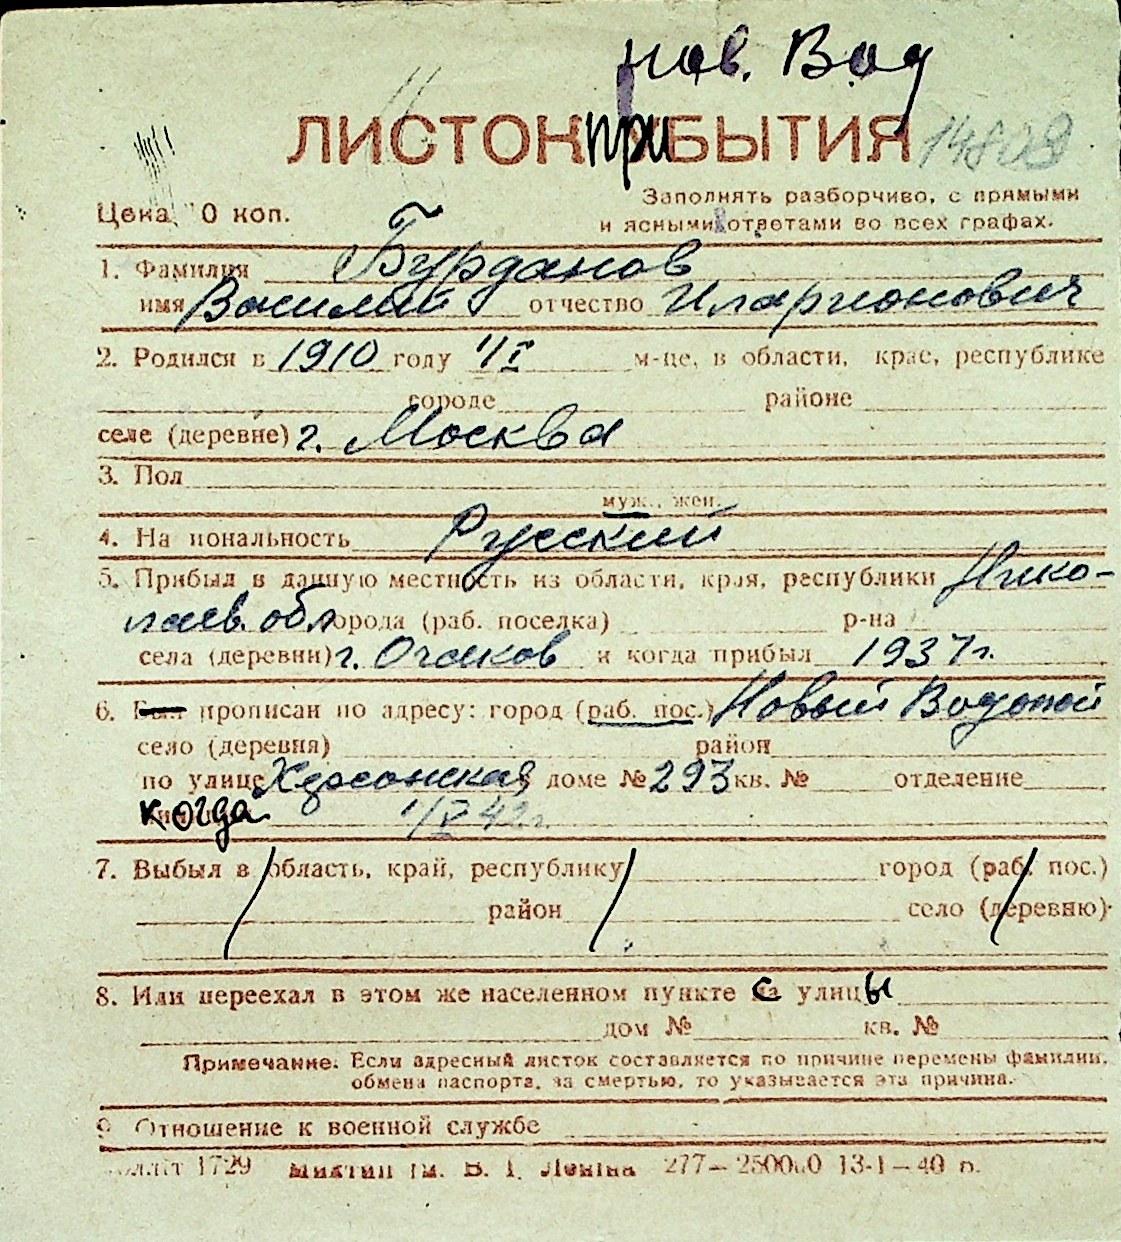 нов. Вод
ЛИСТОК ПРИБЫТИЯ 14808
Цена 10 коп. Заполнять разборчиво, с прямыми
и ясными ответами во всех графах.
1. Фамилия Бурданов
имя Василий отчество Иларионович
2. Родился в 1910 году 1/I м-це, в области, крае, республике
городе районе
селе (деревне) г. Москва
3. Пол
муж., жен.
4. На иональность Русский
5. Прибыл в данную местность из области, края, республики Нико-
лаев. обл города (раб. поселка) р-на
села (деревни) г. Очаков и когда прибыл 1937 г.
6. Был прописан по адресу: город (раб. пос.) Новый Водопой
село (деревня) район
по улице Херсонская доме № 293 кв. № отделение
когда 1/V 42 г.
7. Выбыл в область, край, республику город (раб. пос.)
район село (деревню)
8. Или переехал в этом же населенном пункте с улицы
дом № кв. №
Примечание. Если адресный листок составляется по причине перемены фамилии,
обмена паспорта, за смертью, то указывается эта причина.
9 Отношение к военной службе
1729 277— 13-1—40 р.